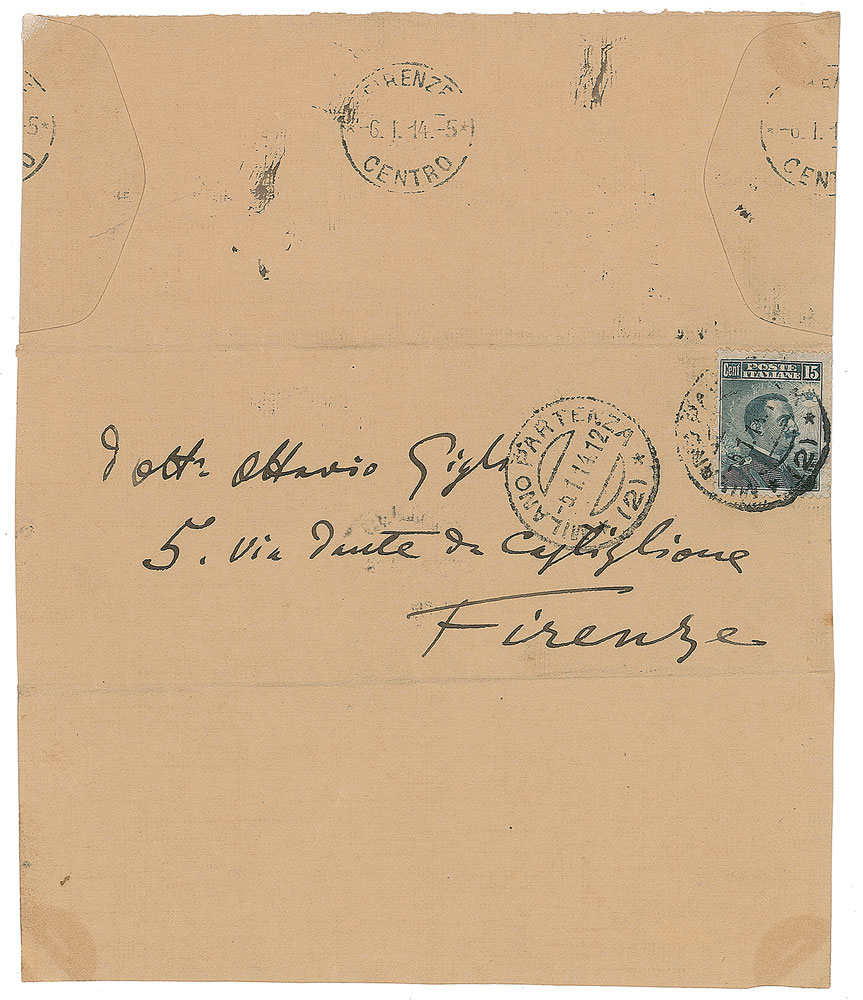 FIRENZE
-6.1.14.-5
CENTRO
-5
-6.1.1
CENT
Cent POSTE ITALIANE 15
MILANO PARTENZA (2)
-5.1.14.12
(2)
Dott. Ottavio
5. Via Dante da Castiglione
Firenze